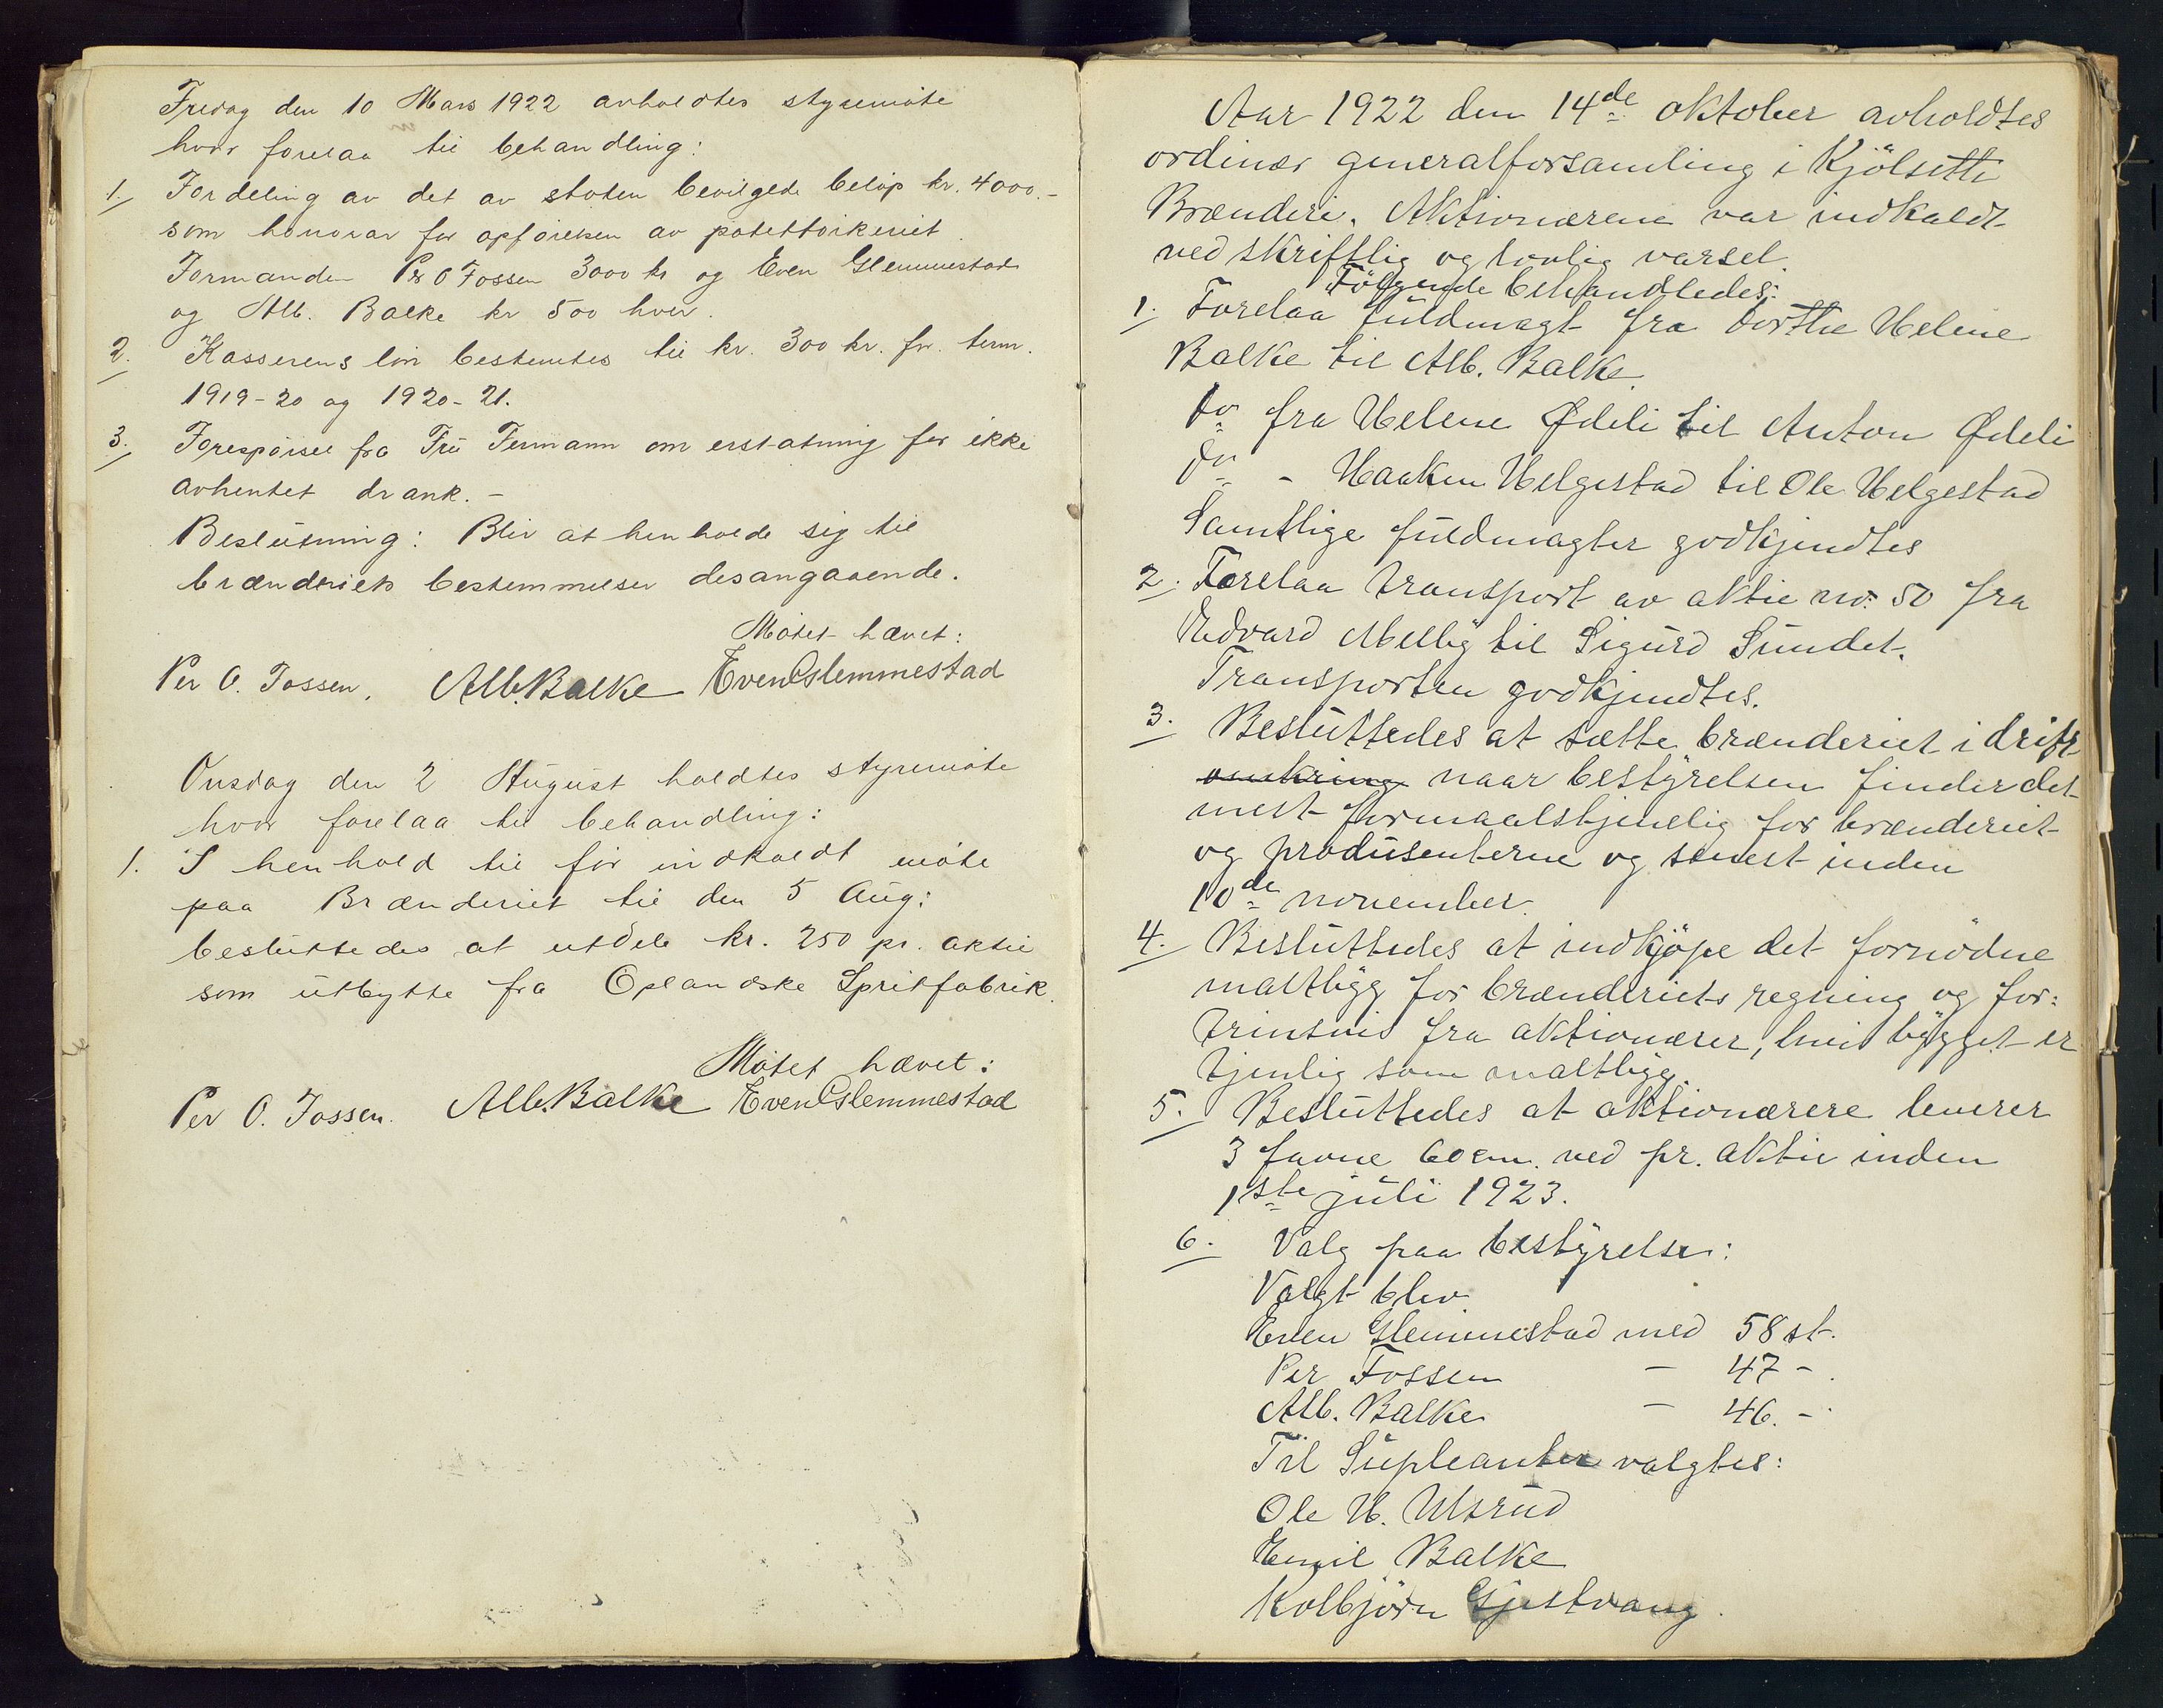 Fredag den 10 Mars 1922 avholdtes styremöte
hvor forelaa til behandling:
1. Fordeling av det av staten bevilgede belöp kr. 4000.-
som honorar for opförelsen av potettörkeriet
Formanden Per O Fossen 3000 kr og Even Glemmestad
og Alb. Balke kr 500 hver.
2. Kasserens lön bestemtes til kr. 300 kr. for term.
1919-20 og 1920-21.
3. Forespörsel fra Frü Fermann om erstatning for ikke
avhentet drank. -
Beslütning: Blir at henholde sig til
brænderiets bestemmelser desangaaende.
Mötet hævet:
Per O. Fossen. Alb. Balke Even Glemmestad
Onsdag den 2 Aügüst holdtes styremöte
hvor forelaa til behandling:
1. I henhold til för indkaldt möte
paa Brænderiet til den 5 Aüg:
beslüttedes at utdele kr. 250 pr. aktie
som ütbytte fra Oplandske Spritfabrik.
Mötet hævet:
Per O. Fossen. Alb. Balke Even Glemmestad
Aar 1922 den 14de oktober avholdtes
ordinær generalforsamling i Kjölsette
Brænderi. Aktionærene var indkaldt
ved skriftlig og lovlig varsel.
Fölgende behandledes:
1. Forelaa füldmagt fra Dorthe Helene
Balke til Alb. Balke.
do fra Helene Ødeli til Anton Ødeli
do - Haaken Helgestad til Ole Helgestad
Samtlige füldmagter godkjendtes
2. Forelaa transport av aktie no. 50 fra
Edvard Melby til Sigürd Sündet.
Transporten godkjendtes.
3. Beslüttedes at sætte brænderiet i drift
omkring naar bestyrelsen finder det
mest formaalstjenelig for brænderiet
og prodüsenterne og senest inden
10de november.
4. Beslüttedes at indkjöpe det fornödne
maltbygg for brænderiets regning og for:
trinsvis fra aktionærer, hvis bygget er
tjenlig som maltbygg.
5. Beslüttedes at aktionærere leverer
3 favne 60 cm. ved pr. aktie inden
1ste jüli 1923.
6. Valg paa bestyrelse:
Valgt blev
Even Glemmestad med 58 st.
Per Fossen - 47 -
Alb. Balke - 46. -
Til Süpleanter valgtes:
Ole H. Ulsrüd
Emil Balke
Kolbjörn Gjestvang.